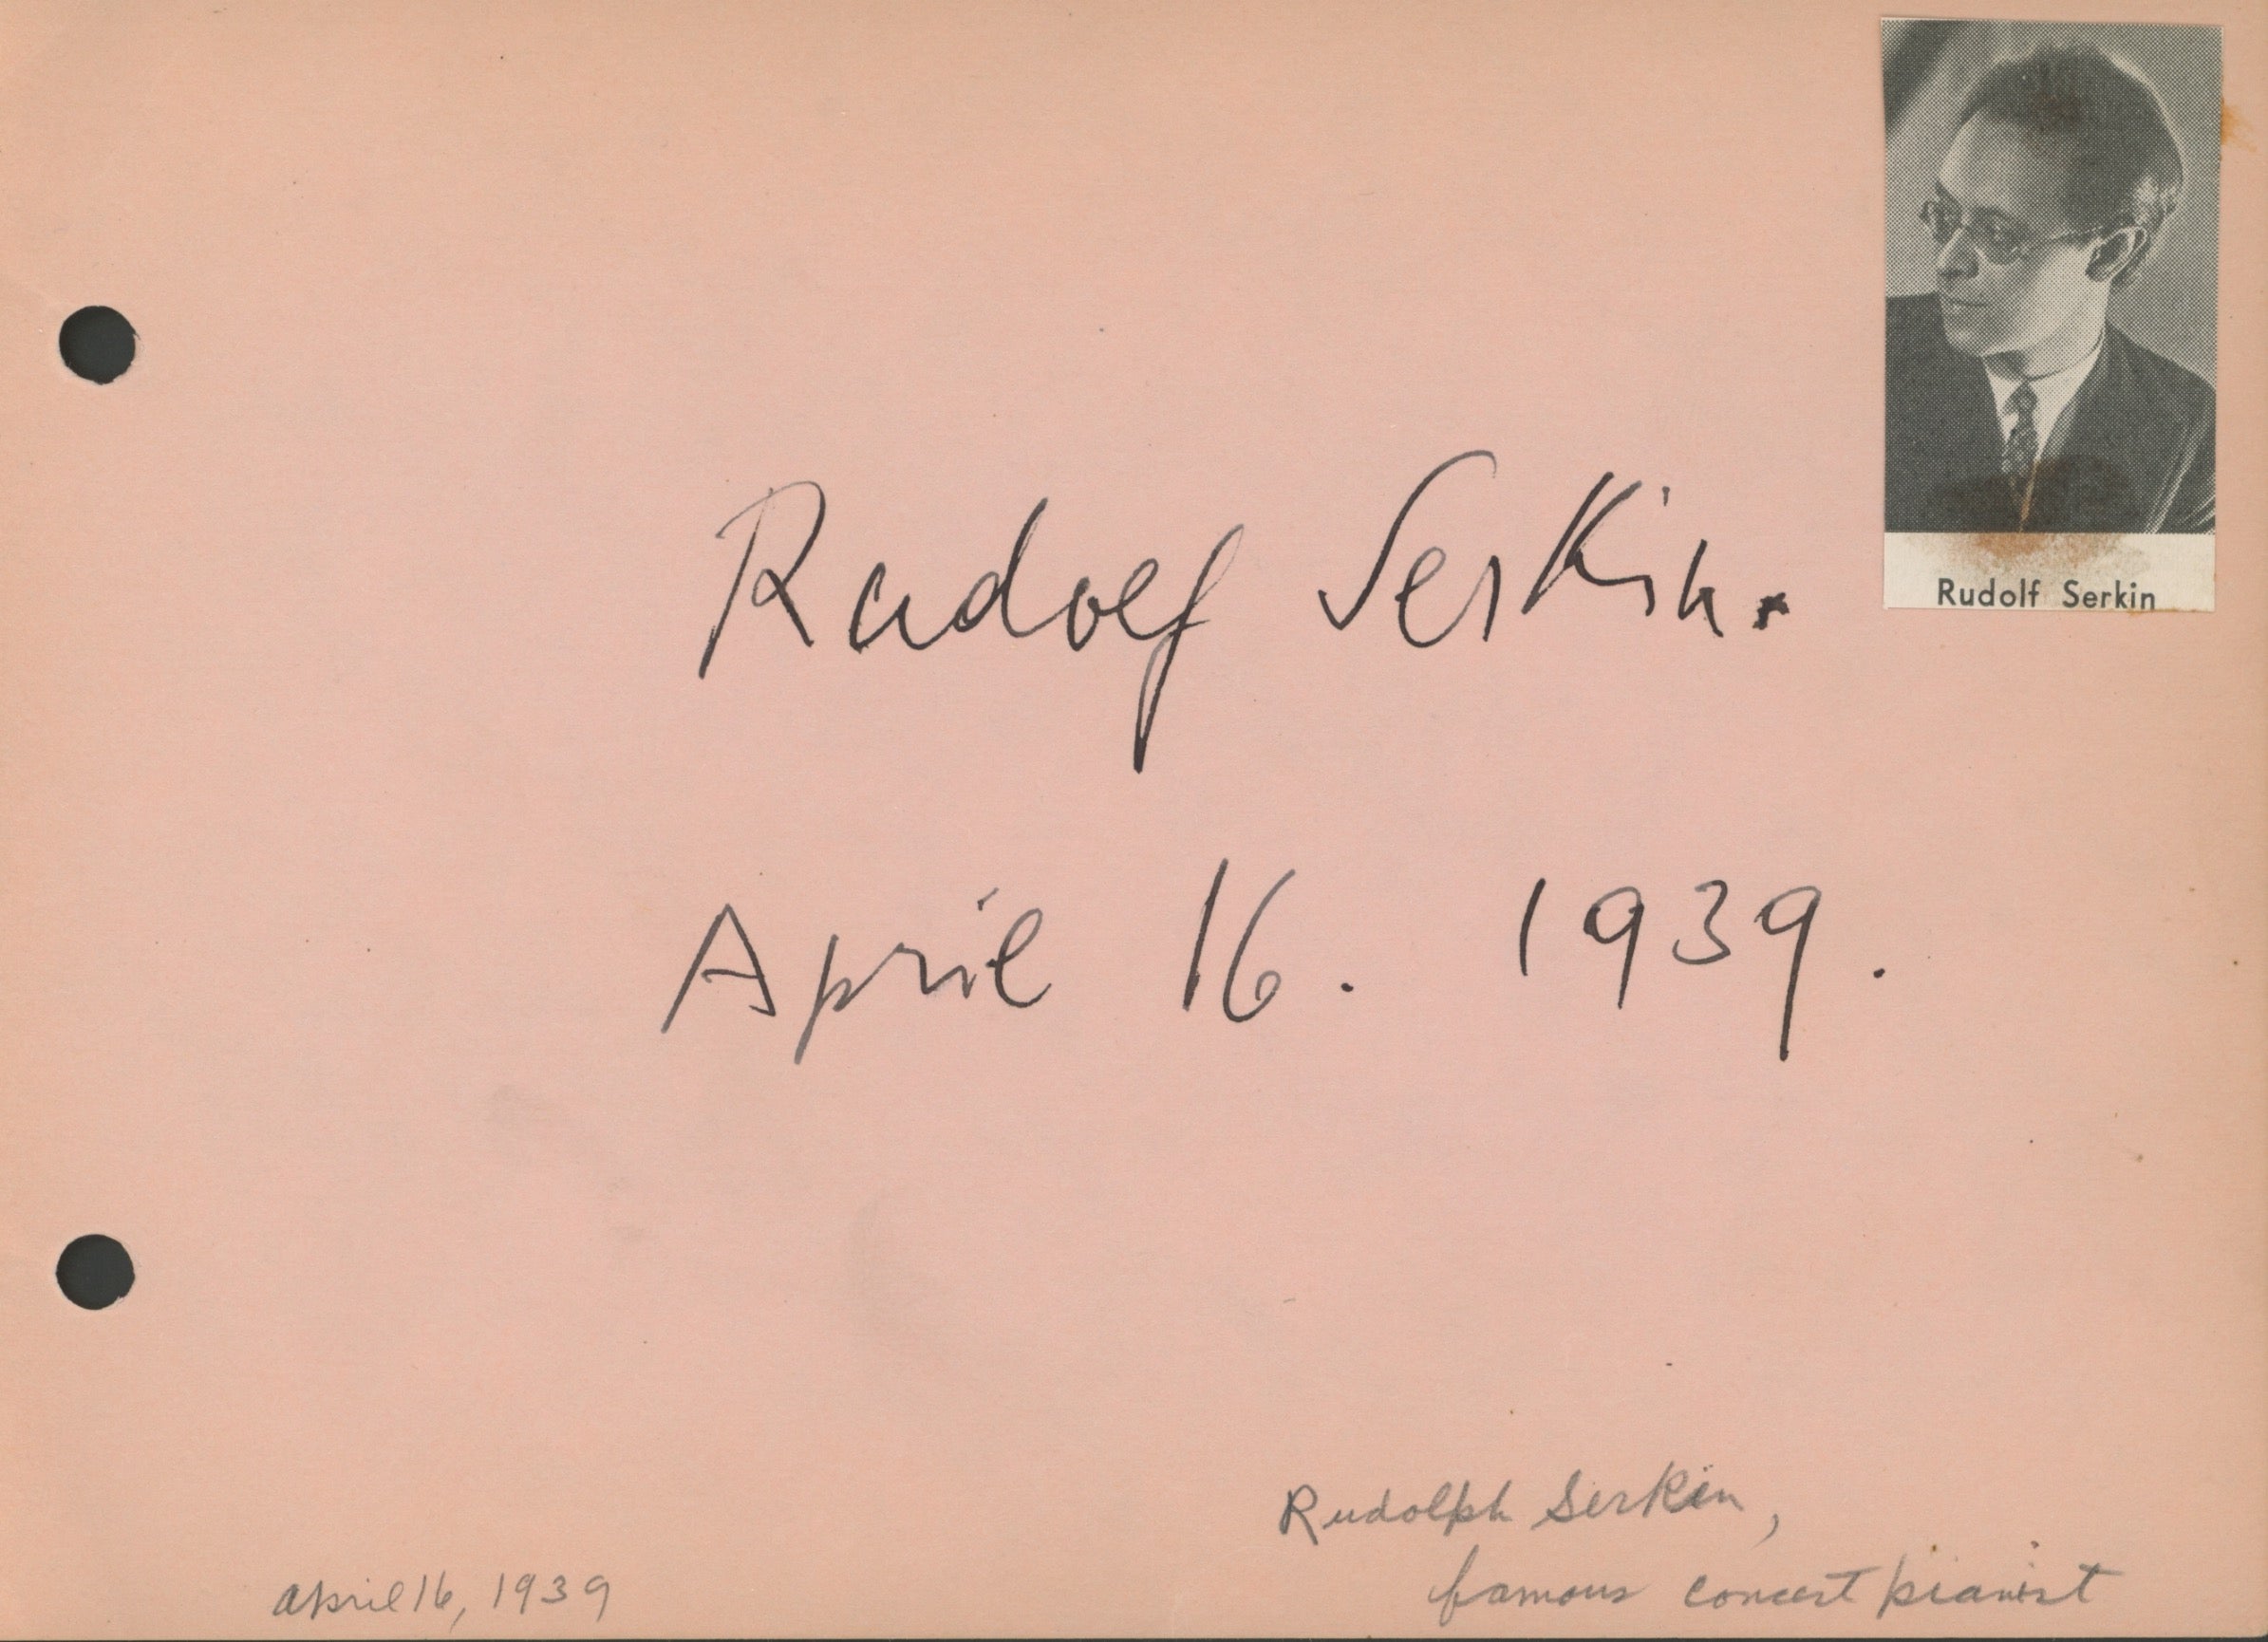 Rudolf Serkin
Rudolf Serkin.
April 16. 1939.
Rudolph Serkin,
famous concert pianist
April 16, 1939